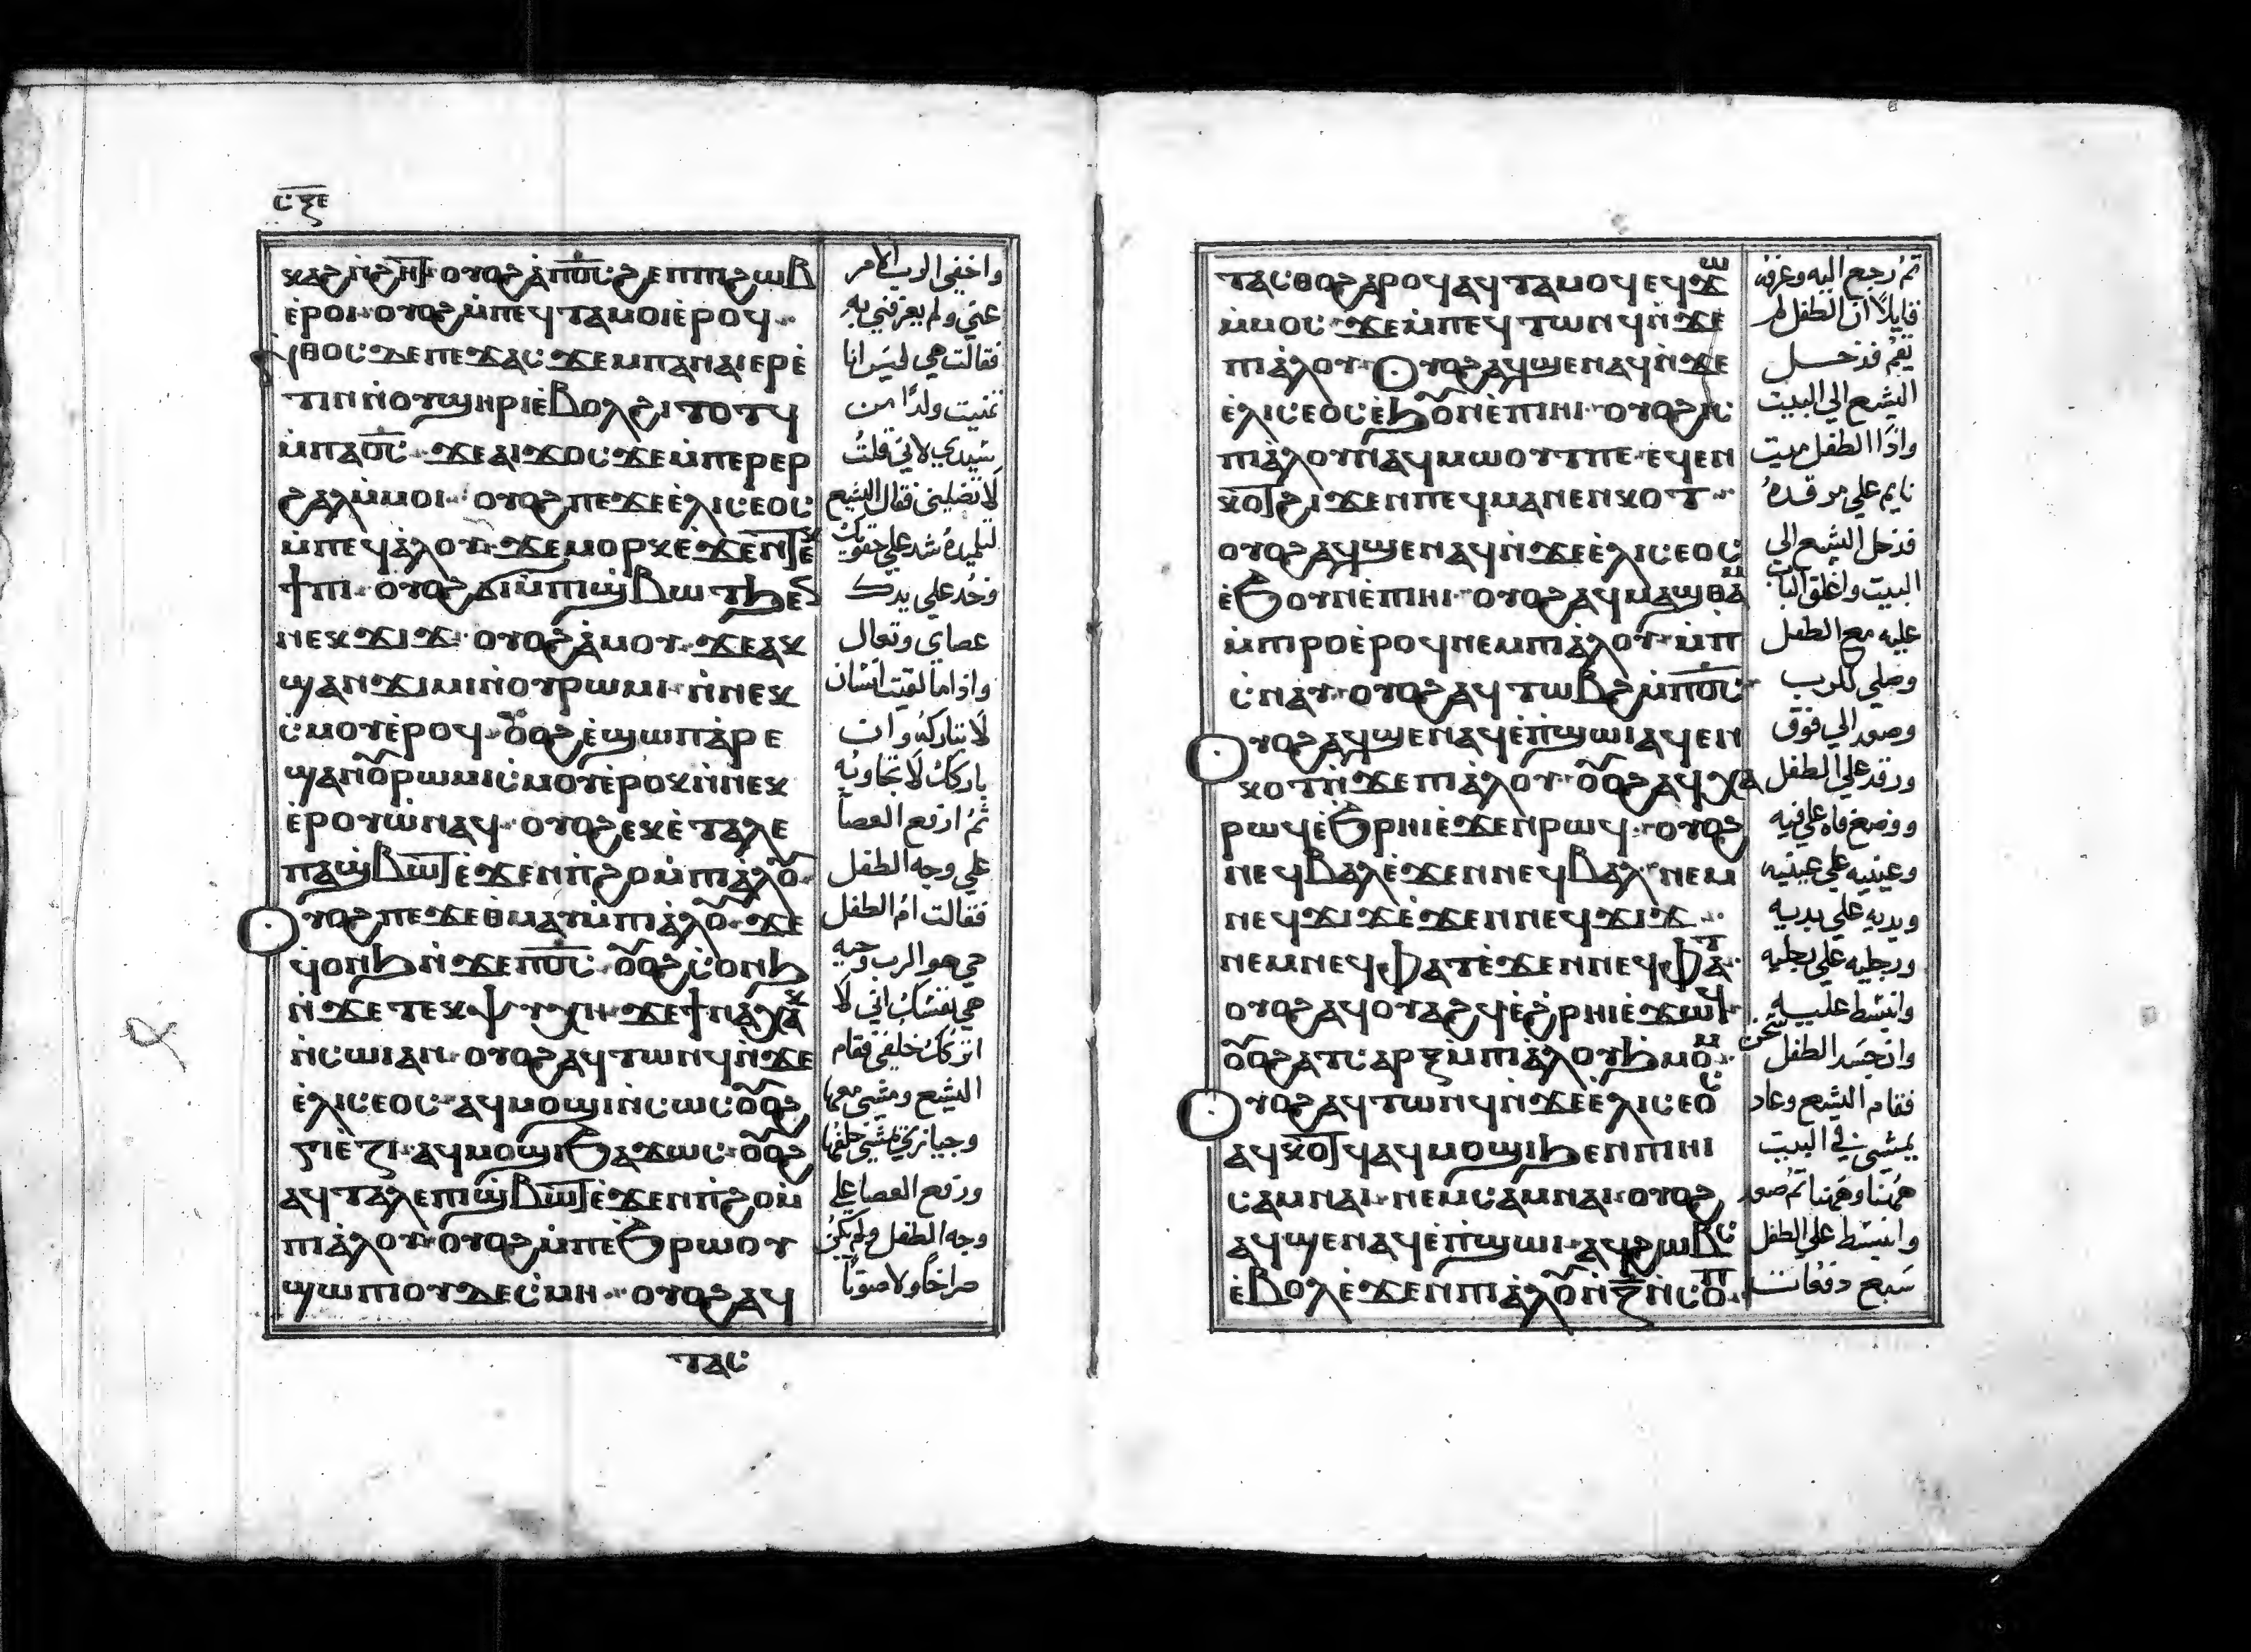 ⲥⲝⲉ
ⲭⲁϩ ⲛ̇ϩⲏϯ ⲟⲩⲟϩ ⲁ̇ⲡⲟ̅ⲥ̅ ϩⲉⲡ ⲡⲓϩⲱⲃ
ⲉ̇ⲣⲟⲓ ⲟⲩⲟϩ ⲙ̇ⲡⲉϥⲧⲁⲙⲟⲓ ⲉ̇ⲣⲟϥ
ⲛ̇ⲑⲟⲥ ⲇⲉ ⲡⲉϫⲁⲥ ϫⲉ ⲙⲡⲁⲛⲁⲓⲉⲣⲉ̇
ⲧⲓⲛ ⲛ̇ⲟⲩϣⲏⲣⲓ ⲉ̇ⲃⲟⲗ ϩⲓⲧⲟⲧϥ
ⲙ̇ⲡⲁⲟ̅ⲥ̅ ϫⲉ ⲁⲓϫⲟⲥ ϫⲉ ⲙ̇ⲡⲉⲣⲉⲣ
ϩⲁⲗ ⲙ̇ⲙⲟⲓ ⲟⲩⲟϩ ⲡⲉϫⲉ ⲉ̇ⲗⲓⲥⲉⲟⲥ
ⲙ̇ⲡⲉϥⲁ̇ⲗⲟⲩ ϫⲉ ⲙⲟⲣⲕ ⲉ̇ϫⲉⲛ ⲧⲉⲕ
ϯⲡⲓ ⲟⲩⲟϩ ϭⲓ ⲙ̇ⲡⲓϣ̇ⲃⲱⲧ ϧⲉⲛ
ⲛⲉⲕϫⲓϫ ⲟⲩⲟϩ ⲁ̇ⲙⲟⲩ ϫⲉ ⲁⲕ
ϣⲁⲛϫⲓⲙⲓ ⲛ̇ⲟⲩⲣⲱⲙⲓ ⲛ̇ⲛⲉⲕ
ⲥ̇ⲙⲟⲩ ⲉ̇ⲣⲟϥ ⲟ̅ⲟϩ ⲉ̇ϣⲱⲡ ⲁ̇ⲣⲉ
ϣⲁⲛ ⲟ̅ⲣⲱⲙⲓ ⲥ̇ⲙⲟⲩ ⲉ̇ⲣⲟⲕ ⲛ̇ⲛⲉⲕ
ⲉ̇ⲣⲟⲩⲱ̇ ⲛⲁϥ ⲟⲩⲟϩ ⲉⲕⲉ̇ⲧⲁⲗⲉ
ⲡⲁϣ̇ⲃⲱⲧ ⲉ̇ϫⲉⲛ ⲡ̇ϩⲟ ⲙ̇ⲡⲓⲁ̇ⲗⲟ̅
ⲟⲩⲟϩ ⲡⲉϫⲉ ⲑⲙⲁⲩ ⲙ̇ⲡⲓⲁ̇ⲗⲟ̅ ϫⲉ
ϥ̇ⲟⲛϧ ⲛ̇ϫⲉ ⲡⲟ̅ⲥ̅ ⲟ̅ⲟϩ ⲥ̇ⲟⲛϧ
ⲛ̇ϫⲉ ⲧⲉⲕⲯⲩⲭⲏ ϫⲉ ϯⲛⲁⲭⲁⲕ
ⲛ̇ⲥⲱⲓ ⲁⲛ ⲟⲩⲟϩ ⲁϥⲧⲱⲛϥ ⲛ̇ϫⲉ
ⲉ̇ⲗⲓⲥⲉⲟⲥ ⲁϥⲙⲟϣⲓ ⲛ̇ⲥⲱⲥ ⲟ̅ⲟϩ
ⲅⲓⲉ̇ⲍⲓ ⲁϥⲙⲟϣⲓ ϧⲁϫⲱⲥ ⲟ̅ⲟϩ
ⲁϥⲧⲁⲗⲉ ⲡⲓϣ̇ⲃⲱⲧ ⲉ̇ϫⲉⲛ ⲡ̇ϩⲟ ⲙ̇
ⲡⲓⲁ̇ⲗⲟⲩ ⲟⲩⲟϩ ⲙ̇ⲡⲉϧⲣⲱⲟⲩ
ϣⲱⲡⲓ ⲟⲩⲇⲉ ⲥ̇ⲙⲏ ⲟⲩⲟϩ ⲁϥ
ⲧⲁⲥ
واخفي الرب الامر
عني ولم يعرفني به
فقالت هي ليس انا
تمنيت ولدًا من
سيدي لاني قلت
لا تضلينى فقال اليشع
لتلميذه شد علي حقويك
وخد علي يدك
عصاي وتعال
واذا ما لقيت انسان
لا تباركه وان
باركك لا تجاوبه
ثم ارفع العصا
علي وجه الطفل
فقالت ام الطفل
حي هو الرب وحيه
هي نفسك اني لا
اتركك خلفي فقام
اليشع ومشي معها
وجيازي مشي خلفها
ورفع العصا علي
وجه الطفل ولم يكن
صراخًا ولا صوتًا
ⲧⲁⲥⲑⲟ ϩⲁⲣⲟϥ ⲁϥⲧⲁⲙⲟϥ ⲉϥϫⲱ
ⲙ̇ⲙⲟⲥ ϫⲉ ⲙ̇ⲡⲉϥⲧⲱⲛϥ ⲛ̇ϫⲉ
ⲡⲓⲁ̇ⲗⲟⲩ ⲟⲩⲟϩ ⲁϥϣⲉⲛⲁϥ ⲛ̇ϫⲉ
ⲉ̇ⲗⲓⲥⲉⲟⲥ ⲉ̇ϧⲟ̅ⲛ ⲉ̇ⲡⲓⲏⲓ ⲟⲩⲟϩ ⲓⲥ
ⲡⲓⲁ̇ⲗⲟⲩ ⲛⲁϥⲙⲱⲟⲩⲧ ⲡⲉ ⲉϥⲉⲛ
ⲕⲟⲧ ϩⲓϫⲉⲛ ⲡⲉϥⲙⲁⲛⲉⲛⲕⲟⲧ
ⲟⲩⲟϩ ⲁϥϣⲉⲛⲁϥ ⲛ̇ϫⲉ ⲉ̇ⲗⲓⲥⲉⲟⲥ
ⲉ̇ϧⲟⲩⲛ ⲉ̇ⲡⲓⲏⲓ ⲟⲩⲟϩ ⲁϥⲙⲁϣⲑⲁⲙ
ⲙ̇ⲡⲓⲣⲟ ⲉ̇ⲣⲟϥ ⲛⲉⲙ ⲡⲓⲁ̇ⲗⲟⲩ ⲙ̇ⲡ
ⲥ̇ⲛⲁⲩ ⲟⲩⲟϩ ⲁϥⲧⲱⲃϩ ⲙ̇ⲡⲟ̅ⲥ̅
ⲟⲩⲟϩ ⲁϥϣⲉⲛⲁϥ ⲉ̇ⲡ̇ϣⲱⲓ ⲁϥⲉⲛ
ⲕⲟⲧ ⲛ̇ϫⲉ ⲡⲓⲁ̇ⲗⲟⲩ ⲟ̅ⲟϩ ⲁϥⲭⲁ
ⲣⲱϥ ⲉ̇ϧⲣⲏⲓ ⲉ̇ϫⲉⲛ ⲣⲱϥ ⲟⲩⲟϩ
ⲛⲉϥⲃⲁⲗ ⲉ̇ϫⲉⲛ ⲛⲉϥⲃⲁⲗ ⲛⲉⲙ
ⲛⲉϥϫⲓϫ ⲉ̇ϫⲉⲛ ⲛⲉϥϫⲓϫ
ⲛⲉⲙ ⲛⲉϥϕⲁⲧ ⲉ̇ϫⲉⲛ ⲛⲉϥϕⲁⲧ
ⲟⲩⲟϩ ⲁϥⲟⲩⲁϩϥ ⲉ̇ϩ̇ⲣⲏⲓ ⲉ̇ϫⲱϥ
ⲟ̅ⲟϩ ⲁⲧⲥⲁⲣⲝ ⲙ̇ⲡⲓⲁ̇ⲗⲟⲩ ϧ̇ⲙⲟⲙ
ⲟⲩⲟϩ ⲁϥⲧⲱⲛϥ ⲛ̇ϫⲉ ⲉ̇ⲗⲓⲥⲉⲟⲥ
ⲁϥⲕⲟⲧϥ ⲁϥⲙⲟϣⲓ ϧⲉⲛ ⲡⲓⲏⲓ
ⲥⲁⲙⲛⲁⲓ ⲛⲉⲙ ⲥⲁⲙⲛⲁⲓ ⲟⲩⲟϩ
ⲁϥϣⲉⲛⲁϥ ⲉ̇ⲡ̇ϣⲱⲓ ⲁϥϩⲱⲃⲥ
ⲉ̇ⲃⲟⲗ ⲉ̇ϫⲉⲛ ⲡⲓⲁ̇ⲗⲟ̅ ⲛ̇ⲍ̅ ⲛ̇ⲥⲟⲡ
ثم رجع اليه وعرفه
قايلاً ان الطفل لم
يقم فدخل
اليشع الي البيت
واذا الطفل ميت
نايم علي مرقده
فدخل اليشع الي
البيت واغلق الباب
عليه مع الطفل
وصلي للرب
وصعد الي فوق
ورقد علي الطفل
ووضع فاه علي فيه
وعينيه علي عينيه
ويديه علي يديه
ورجليه علي رجليه
وانبسط عليه
وسخن جسد الطفل
فقام اليشع وعاد
يمشي في البيت
ههنا وههنا ثم صعد
وانبسط علي الطفل
سبع دفعات